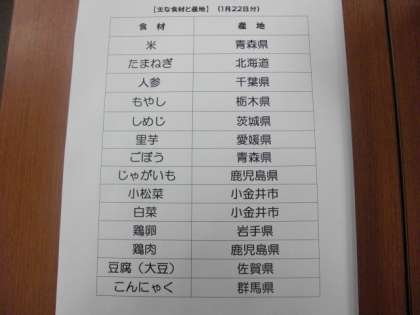 【主な食材と産地】 (1月22日分)
食 材 産 地
米 青森県
たまねぎ 北海道
人参 千葉県
もやし 栃木県
しめじ 茨城県
里芋 愛媛県
ごぼう 青森県
じゃがいも 鹿児島県
小松菜 小金井市
白菜 小金井市
鶏卵 岩手県
鶏肉 鹿児島県
豆腐（大豆） 佐賀県
こんにゃく 群馬県